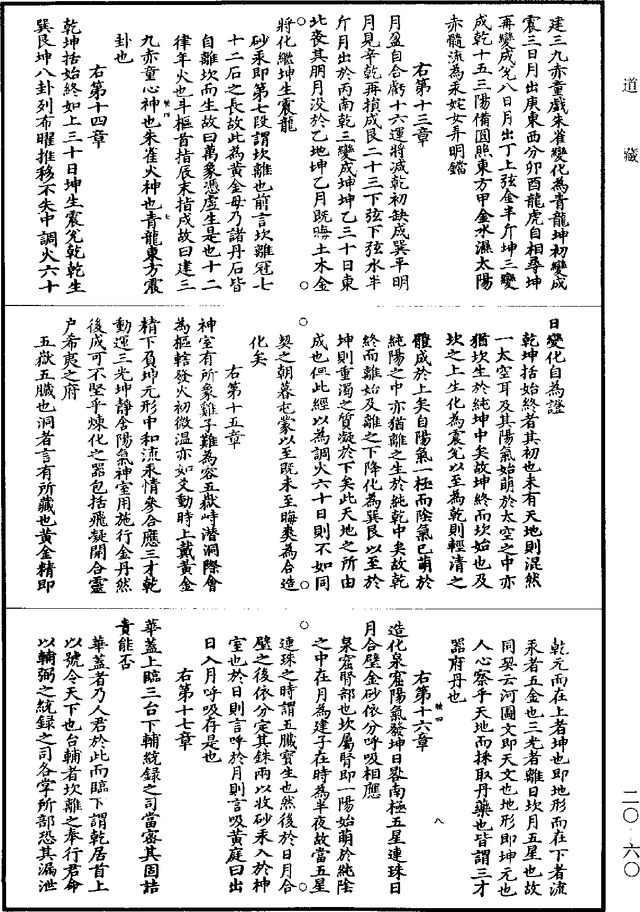 道藏
建三九赤童戲朱雀變化為青龍坤初變成
震三日月出庚東西分卯酉龍虎自相尋坤
再變成兌八日月出丁上弦金半斤坤三變
成乾十五三陽備圓照東方甲金水濕太陽
赤髓流為汞姹女弄明璫
右第十三章
月盈自合虧十六運將減乾初缺成巽平明
月見辛乾再損成艮二十三下弦下弦水半
斤月出於丙南乾三變成坤坤乙三十日東
北喪其朋月没於乙地坤乙月既晦土木金
將化繼坤生震龍
砂汞即第七段謂坎離也前言坎離冠七
十二石之長故此為黃金母乃諸丹石皆
自離坎而生故曰萬象憑虛生是也十二
律年火也斗樞首指辰末指戌故曰建三
九赤童心神也朱雀火神也青龍東方震
卦也
右第十四章
乾坤括始終如上三十日坤生震兌乾乾生
巽艮坤八卦列布曜推移不失中調火六十
日變化自為證
乾坤括始終者其初也未有天地則混然
一太空耳及其陽氣始萌於太空之中亦
猶坎生於純坤中矣故坤終而坎始也及
坎之上生化為震兌以至為乾則輕清之
體成於上矣自陽氣一極而陰氣已萌於
純陽之中亦猶離之生於純乾中矣故乾
終而離始及離之下降化為巽艮以至於
坤則重濁之質凝於下矣此天地之所由
成也但此經以為調火六十日則不如同
契之朝暮屯蒙以至既未至晦爽為合造
化矣
右第十五章
神室有所象雞子難為容五嶽峙潛洞際會
為樞轄發火初微温亦如爻動時上戴黃金
精下負坤元形中和流汞情參合應三才乾
動運三光坤靜含陽氣神室用施行金丹然
後成可不堅乎煉化之器包括飛凝開合靈
户希夷之府
五嶽五臟也洞者言有所藏也黃金精即
乾元而在上者坤也即地形而在下者流
汞者五金也三光者離日坎月五星也故
同契云河圖文即天文也地形即坤元也
人心察乎天地而採取丹藥也皆謂三才
器府丹也
右第十六章
造化泉窟陽氣發坤日晷南極五星連珠日
月合璧金砂依分呼吸相應
泉窟腎部也坎屬腎即一陽始萌於純陰
之中在月為建子在時為半夜故當五星
連珠之時謂五臟寳生也然後於日月合
壁之後依分定其銖兩以收砂汞入於神
室也於日則言呼於月則言吸黃庭曰出
日入月呼吸存是也
右第十七章
華蓋上臨三台下輔統錄之司當密其固詰
責能否
華蓋者乃人君於此而臨下謂乾居首上
以號令天下也台輔者坎離之奉行君命
以輔弼之統錄之司各掌所部恐其漏泄
七
八
二〇-六〇